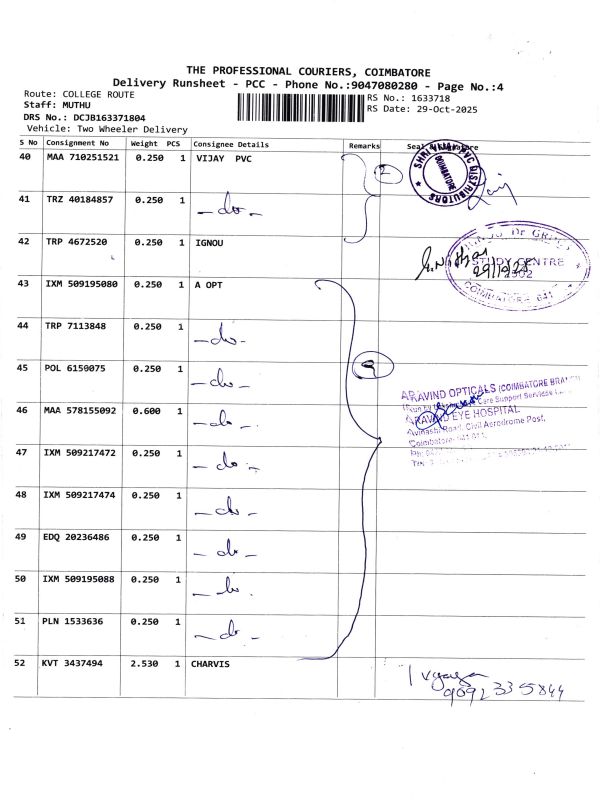 THE PROFESSIONAL COURIERS, COIMBATORE
Delivery Runsheet - PCC - Phone No.:9047080280 - Page No.:4
Route: COLLEGE ROUTE
RS No.: 1633718
Staff: MUTHU
RS Date: 29-Oct-2025
DRS No.: DCJB163371804
Vehicle: Two Wheeler Delivery
S No Consignment No Weight PCS Consignee Details Remarks Seal & Signature
40 MAA 710251521 0.250 1 VIJAY PVC 2
SHRI VIJAY PVC DISTRIBUTORS
COIMBATORE
41 TRZ 40184857 0.250 1 -do-
42 TRP 4672520 0.250 1 IGNOU
STUDY CENTRE
COIMBATORE 641
43 IXM 509195080 0.250 1 A OPT
44 TRP 7113848 0.250 1 -do-
45 POL 6150075 0.250 1 -do- 9
ARAVIND OPTICALS (COIMBATORE BRANCH)
Care Support Services
46 MAA 578155092 0.600 1 -do-
ARAVIND EYE HOSPITAL
Avinashi Road, Civil Aerodrome Post,
Coimbatore
47 IXM 509217472 0.250 1 -do-
48 IXM 509217474 0.250 1 -do-
49 EDQ 20236486 0.250 1 -do-
50 IXM 509195088 0.250 1 -do-
51 PLN 1533636 0.250 1 -do-
52 KVT 3437494 2.530 1 CHARVIS
9092335844